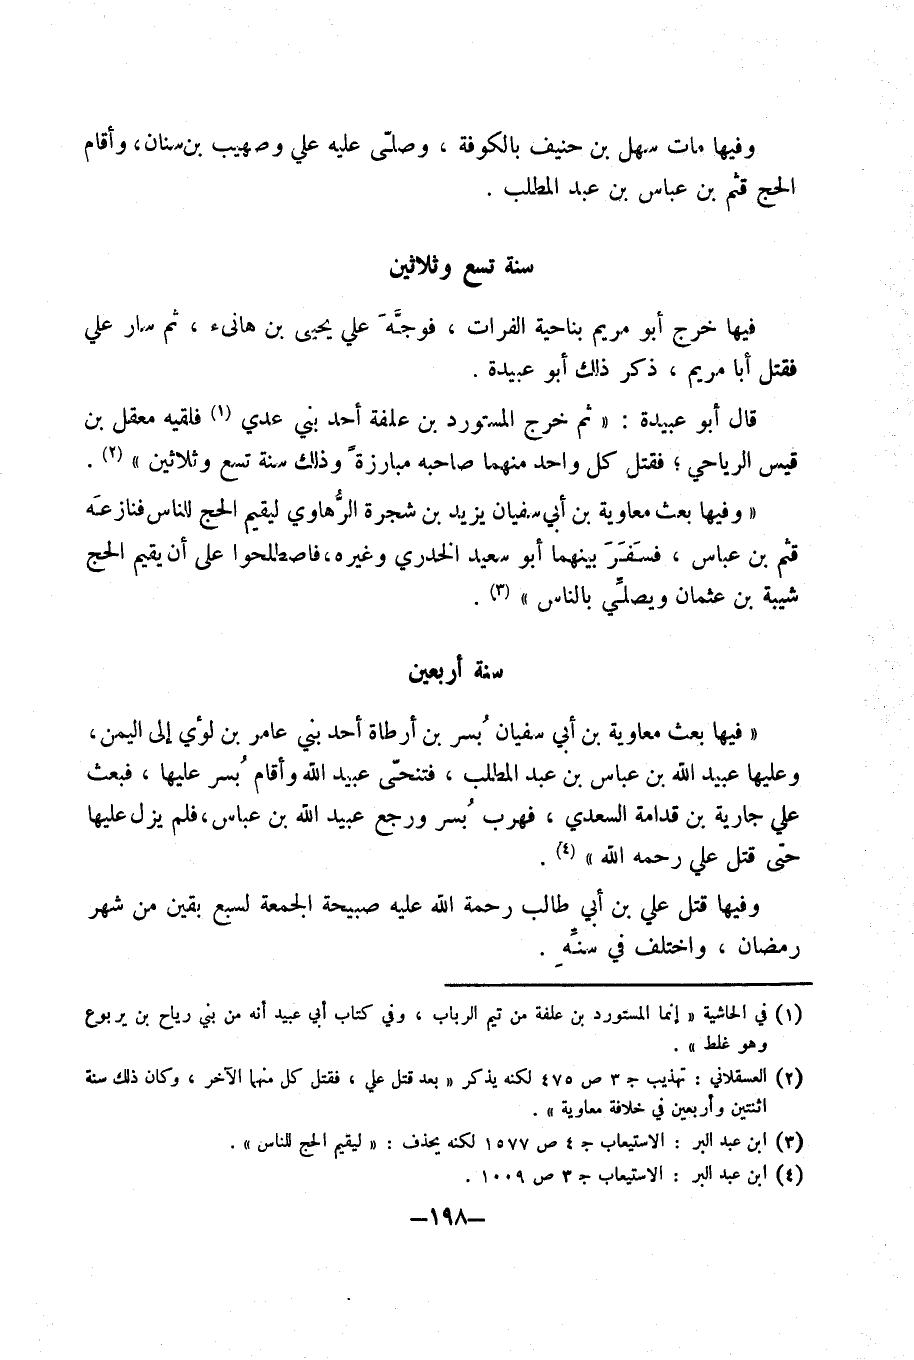 وفيها مات سهل بن حنيف بالكوفة ، وصلّى عليه علي وصهيب بن سنان، وأقام
الحج قثم بن عباس بن عبد المطلب .
سنة تسع وثلاثين
فيها خرج أبو مريم بناحية الفرات ، فوجَّهَ علي يحيى بن هانىء ، ثم سار علي
فقتل أبا مريم ، ذكر ذلك أبو عبيدة .
قال أبو عبيدة : « ثم خرج المستورد بن علفة أحد بني عدي (١) فلقيه معقل بن
قيس الرياحي ؛ فقتل كل واحد منهما صاحبه مبارزةً وذلك سنة تسع وثلاثين » (٢) .
« وفيها بعث معاوية بن أبي سفيان يزيد بن شجرة الرُّهاوي ليقيم الحج للناس فنازعَه
قثم بن عباس ، فسَفَرَ بينهما أبو سعيد الخدري وغيره،فاصطلحوا على أن يقيم الحج
شيبة بن عثمان ويصلّي بالناس » (٣) .
سنة أربعين
« فيها بعث معاوية بن أبي سفيان بُسر بن أرطاة أحد بني عامر بن لؤي إلى اليمن،
وعليها عبيد الله بن عباس بن عبد المطلب ، فتنحّى عبيد الله وأقام بُسر عليها ، فبعث
علي جارية بن قدامة السعدي ، فهرب بُسر ورجع عبيد الله بن عباس،فلم يزل عليها
حتّى قتل علي رحمه الله » (٤) .
وفيها قتل علي بن أبي طالب رحمة الله عليه صبيحة الجمعة لسبع بقين من شهر
رمضان ، واختلف في سنِّهِ .
(١) في الحاشية « إنما المستورد بن علفة من تيم الرباب ، وفي كتاب أبي عبيد أنه من بني رياح بن يربوع
وهو غلط » .
(٢) العسقلاني : تهذيب ج ٣ ص ٤٧٥ لكنه يذكر « بعد قتل علي ، فقتل كل منهما الآخر ، وكان ذلك سنة
اثنتين وأربعين في خلافة معاوية » .
(٣) ابن عبد البر : الاستيعاب ج ٤ ص ١٥٧٧ لكنه يحذف : « ليقيم الحج للناس » .
(٤) ابن عبد البر : الاستيعاب ج ٣ ص ١٠٠٩ .
–١٩٨–